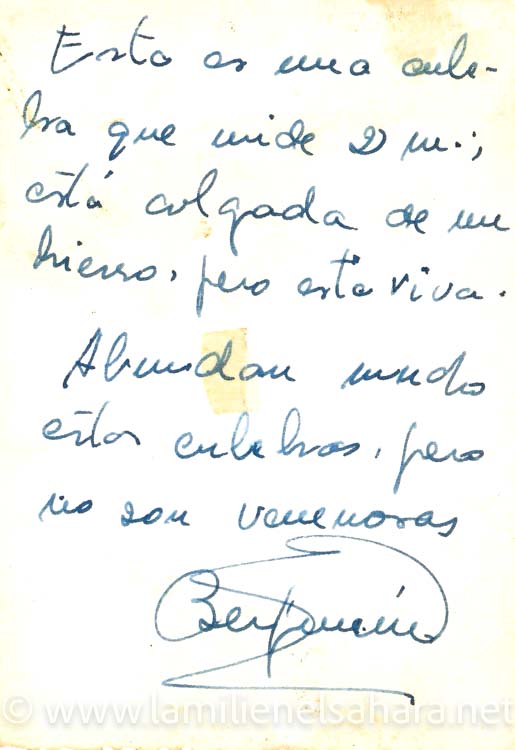 Esta es una cule-
bra que mide 2 m.;
está colgada de un
hierro, pero está viva.
Abundan mucho
estas culebras, pero
no son venenosas
Benjamín
© www.lamilienelsahara.net